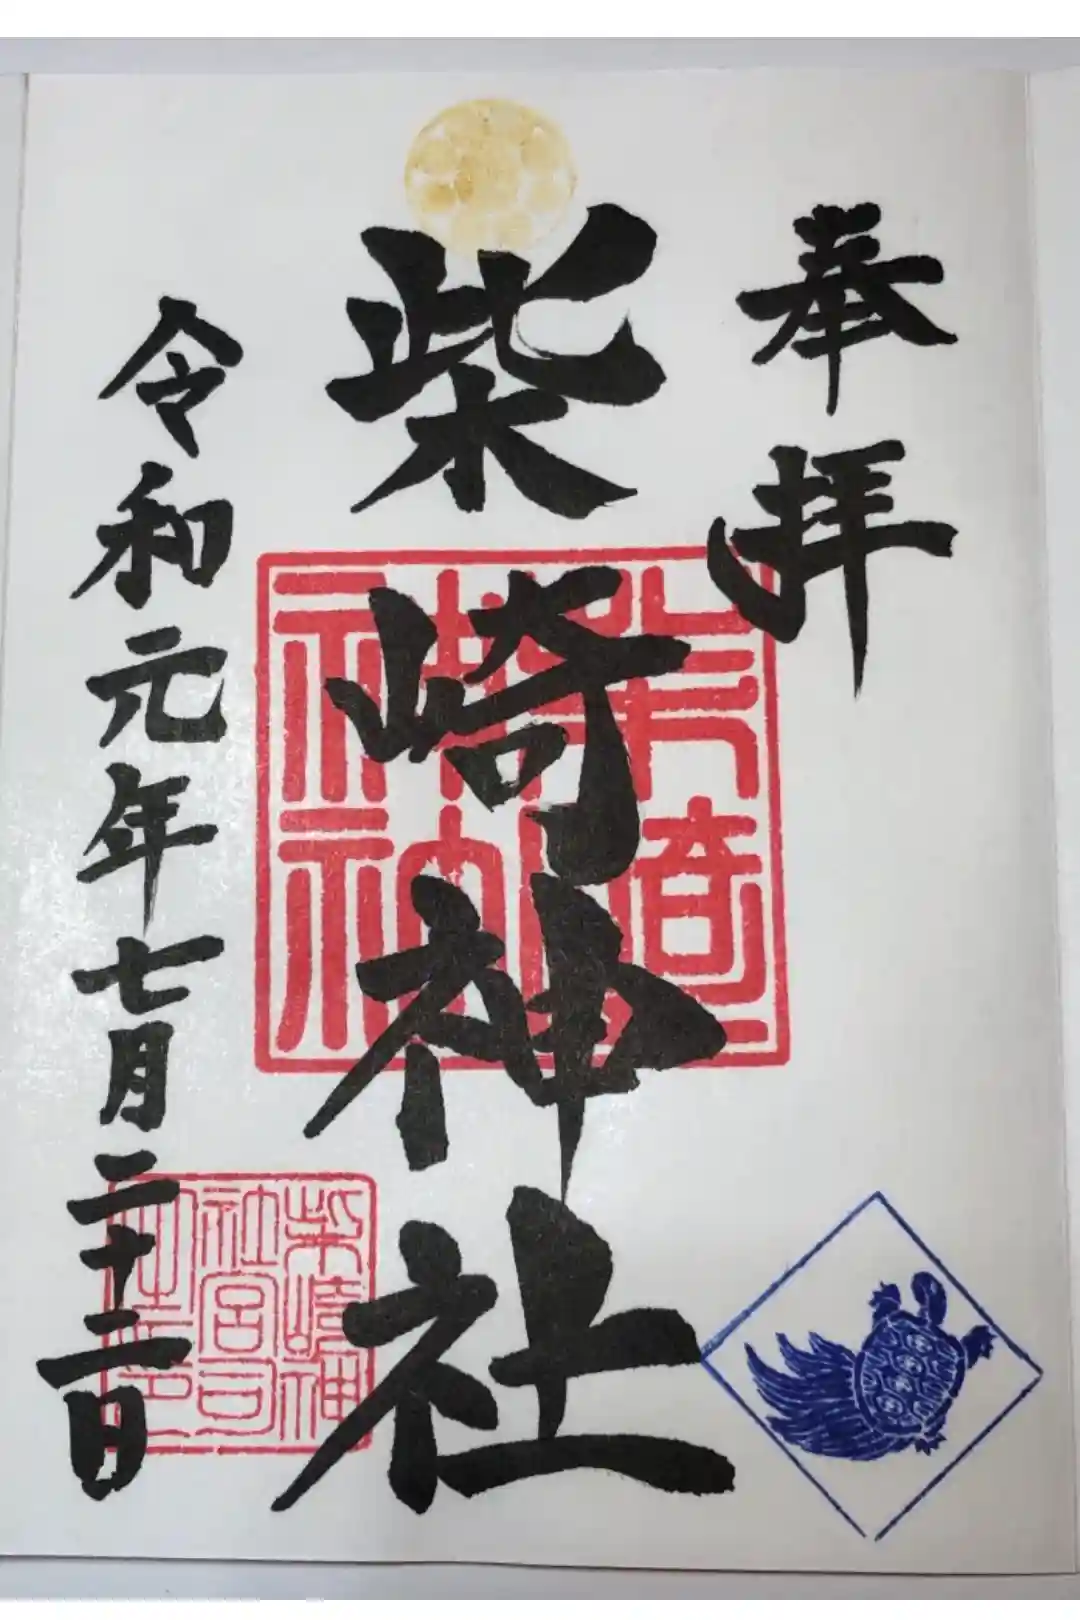 奉拝
柴崎神社
令和元年七月二十二日
柴崎神
社宮司
之印
柴崎
神社